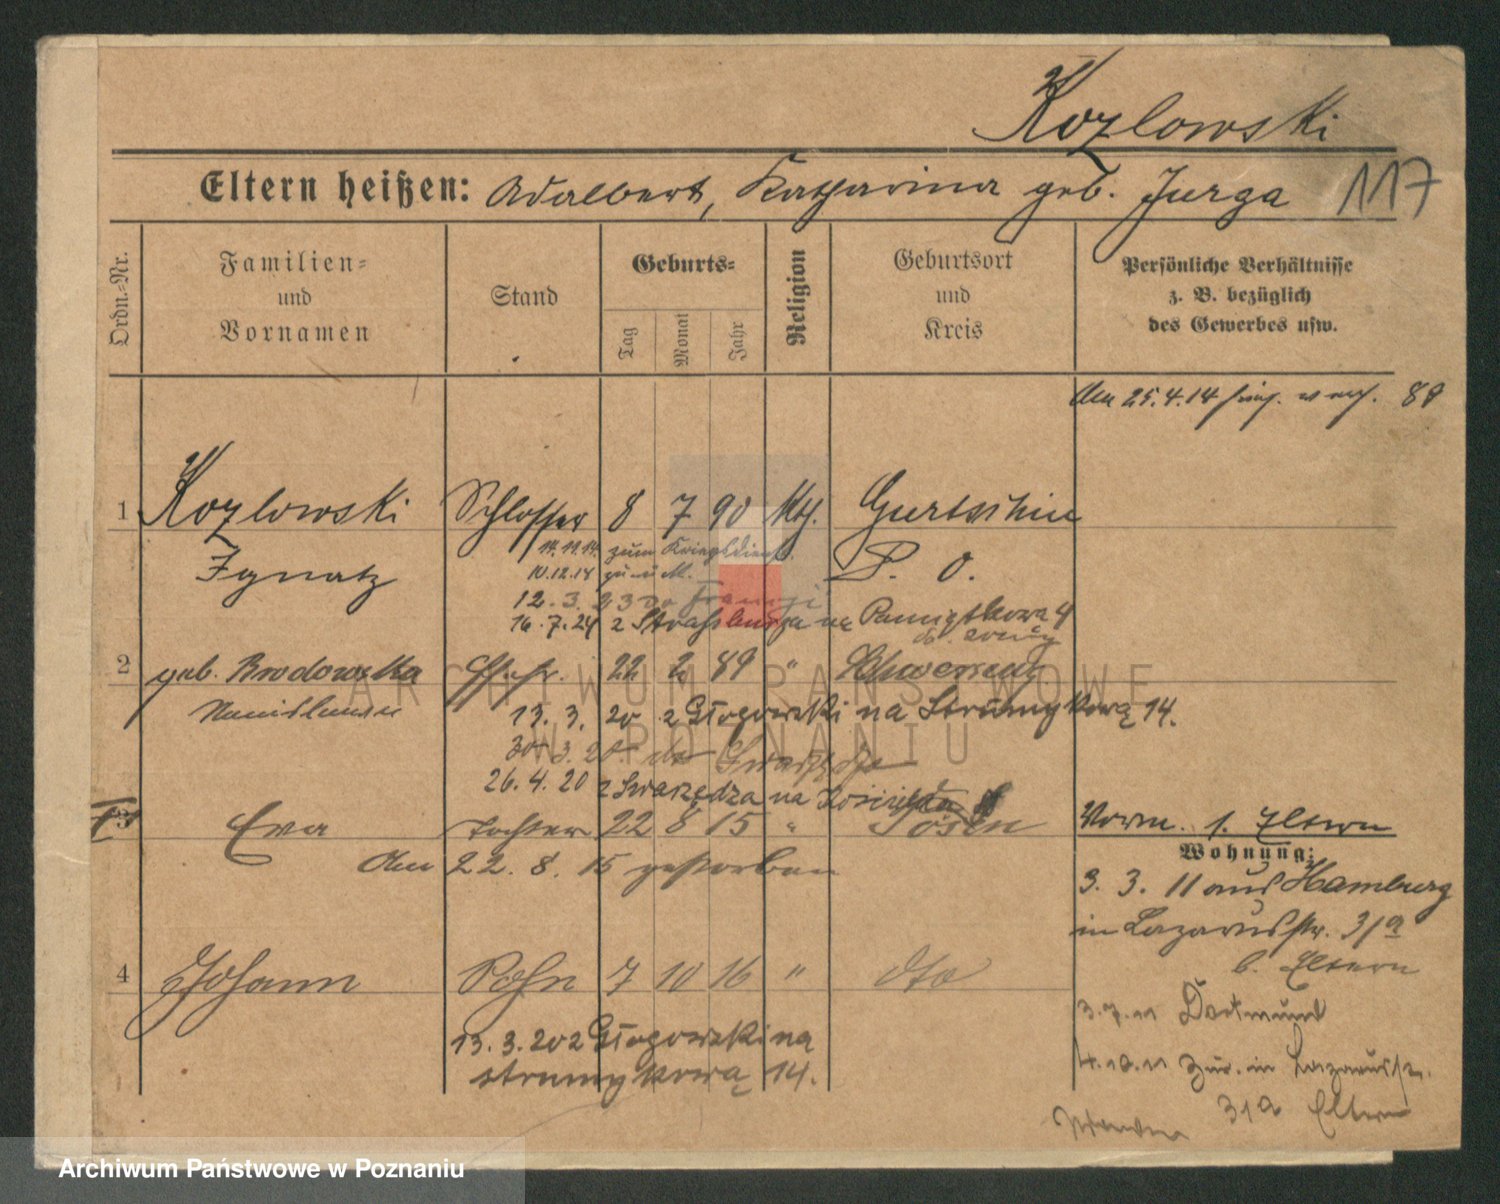 Kozlowski
Eltern heißen: Adalbert, Katharina geb. Jurga 117
Ordn.-Nr.
Familien-
und
Vornamen
Stand
Geburts-
Tag
Monat
Jahr
Religion
Geburtsort
und
Kreis
Persönliche Verhältnisse
z. B. bezüglich
des Gewerbes usw.
25.4.14 89
1 Kozlowski Schlosser 8 7 90 kth. Gurtschin
Ignatz P. O.
14.11.14 zum Kriegsdienst
10.12.14 zurück.
12.3.23 do Francji
16.7.24 z Strassburga na Pamiątkowa 4
2 geb. Brodowska Ehefr. 22 2 89 " Schwersenz
13.3.20 z Głogowski na Strumykową 14.
30.3.20 do Swarzędza
26.4.20 z Swarzędza na
3 Eva Tochter 22 8 15 " Posen
Am 22.8.15 gestorben
Vorm. s. Eltern
Wohnung:
3.3.11 aus Hamburg
in Lazarusstr. 31a
b. Eltern
4 Johann Sohn 7 10 16 " dto
3.7.11 Dortmund
13.3.20 z Głogowski na
Strumykową 14.
4.10.11 Zur. in Lazarusstr.
31a Eltern
ARCHIWUM PAŃSTWOWE
W POZNANIU
Archiwum Państwowe w Poznaniu